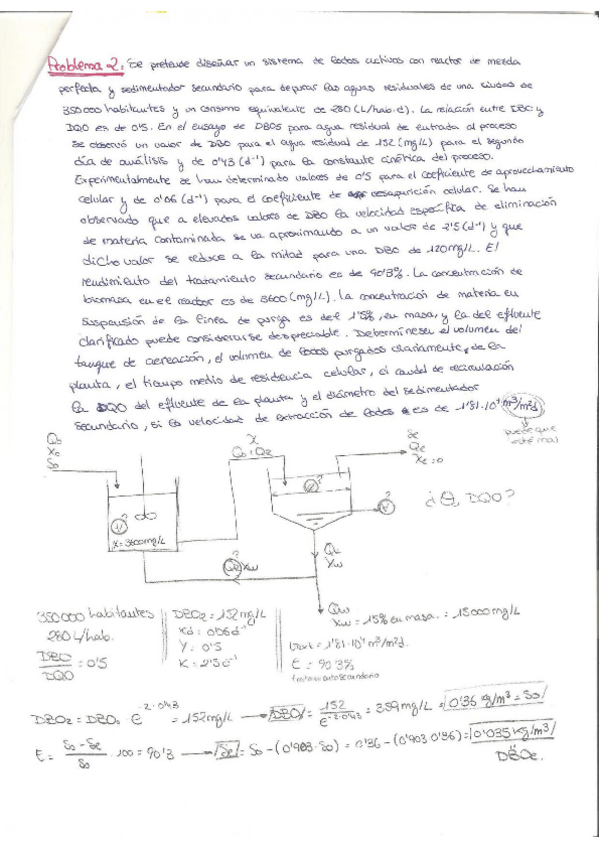 Problema 2. Se pretende diseñar un sistema de lodos activos con reactor de mezcla
perfecta y sedimentador secundario para depurar las aguas residuales de una ciudad de
350000 habitantes y un consumo equivalente de 280 (L/hab·d). La relación entre DBO y
DQO es de 0'5. En el ensayo de DBO5 para agua residual de entrada al proceso
se observó un valor de DBO para el agua residual de 152 (mg/L) para el segundo
día de análisis y de 0'43 (d⁻¹) para la constante cinética del proceso.
Experimentalmente se han determinado valores de 0'5 para el coeficiente de aprovechamiento
celular y de 0'06 (d⁻¹) para el coeficiente de desaparición celular. Se han
observado que a elevados valores de DBO la velocidad específica de eliminación
de materia contaminada se va aproximando a un valor de 2'5 (d⁻¹) y que
dicho valor se reduce a la mitad para una DBO de 120mg/L. El
rendimiento del tratamiento secundario es de 90'3%. La concentración de
biomasa en el reactor es de 3600 (mg/L). La concentración de materia en
suspensión de la línea de purga es del 1'5%, en masa, y la del efluente
clarificado puede considerarse despreciable. Determínese el volumen del
tanque de aereación, el volumen de lodos purgados diariamente, de la
planta, el tiempo medio de residencia celular, el caudal de recirculación
la DQO del efluente de la planta y el diámetro del sedimentador
secundario, si la velocidad de extracción de lodos es de 1'81·10⁴ m³/m²d
puede que
esté mal
Q₀ X Se
X₀ Qe
S₀ Xe=0
¿ θ, DQO?
V?
X=3600mg/L
Xw
Xw
Qw
Xw = 1'5% en masa. = 15000mg/L
350000 habitantes DBO₂ = 152mg/L
280 L/hab. Kd = 0'06d⁻¹ = 1'81·10⁴ m³/m²d.
DBO/DQO = 0'5 Y = 0'5 E = 90'3%
K = 2'5d⁻¹ tratamiento secundario
DBO₂ = DBO₀ e^-2·0'43 = 152mg/L → DBO₀ = 152/e^-2·0'43 = 359mg/L = 0'36 kg/m³ = S₀
E = (S₀ - Se)/S₀ · 100 = 90'3 → Se = S₀ - (0'903·S₀) = 0'36 - (0'903·0'36) = 0'035 kg/m³
DBOe.